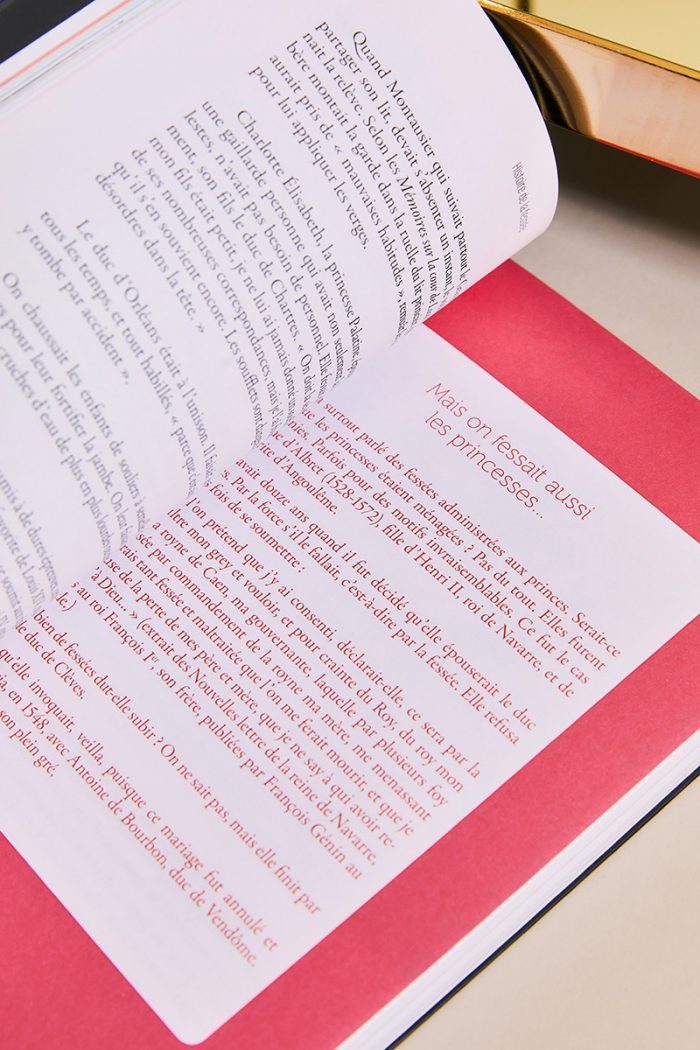 Histoire de la fessée
Quand Montausier qui suivait partout le
partager son lit, devait s'absenter un instant,
nait la relève. Selon les Mémoires sur la cour de
bère montait la garde dans la ruelle du lit
aurait pris de « mauvaises habitudes »,
pour lui appliquer les verges.
Charlotte Élisabeth, la princesse Palatine,
une gaillarde personne qui avait non seulement
lestes, n'avait pas besoin de personnel. Elle
ment, son fils le duc de Chartres. « On doit
mon fils était petit, je ne lui ai jamais donné
qu'il s'en souvient encore. Les soufflets sont
de ses nombreuses correspondances, mais je
désordres dans la tête. »
Le duc d'Orléans était à l'unisson. Il
tous les temps, et tout habillés, « parce que
y tombe par accident ».
On chaussait les enfants de souliers à
pour leur fortifier la jambe. On
cruches d'eau de plus en plus
mis à de dures
Mais on fessait aussi
les princesses...
surtout parlé des fessées administrées aux princes. Serait-ce
les princesses étaient ménagées ? Pas du tout. Elles furent
Parfois pour des motifs invraisemblables. Ce fut le cas
d'Albret (1528-1572), fille d'Henri II, roi de Navarre, et de
d'Angoulême.
avait douze ans quand il fut décidé qu'elle épouserait le duc
Par la force s'il le fallait, c'est-à-dire par la fessée. Elle refusa
fois de se soumettre :
on prétend que j'y ai consenti, déclarait-elle, ce sera par la
mon grey et vouloir, et pour crainte du Roy, du roy mon
royne de Caen, ma gouvernante, laquelle par plusieurs foy
par commandement de la royne ma mère, me menassant
tant fessée et maltraitée que l'on me ferait mourir, et que je
de la perte de mes père et mère, que je ne say à qui avoir re-
à Dieu... » (extrait des Nouvelles lettre de la reine de Navarre,
au roi François Ier son frère, publiées par François Génin au
bien de fessées dut-elle subir ? On ne sait pas, mais elle finit par
le duc de Clèves.
qu'elle invoquait, veilla, puisque ce mariage fut annulé et
en 1548, avec Antoine de Bourbon, duc de Vendôme.
son plein gré.